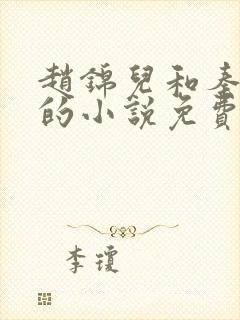 趙錦兒和秦
的小說免費
李瓊